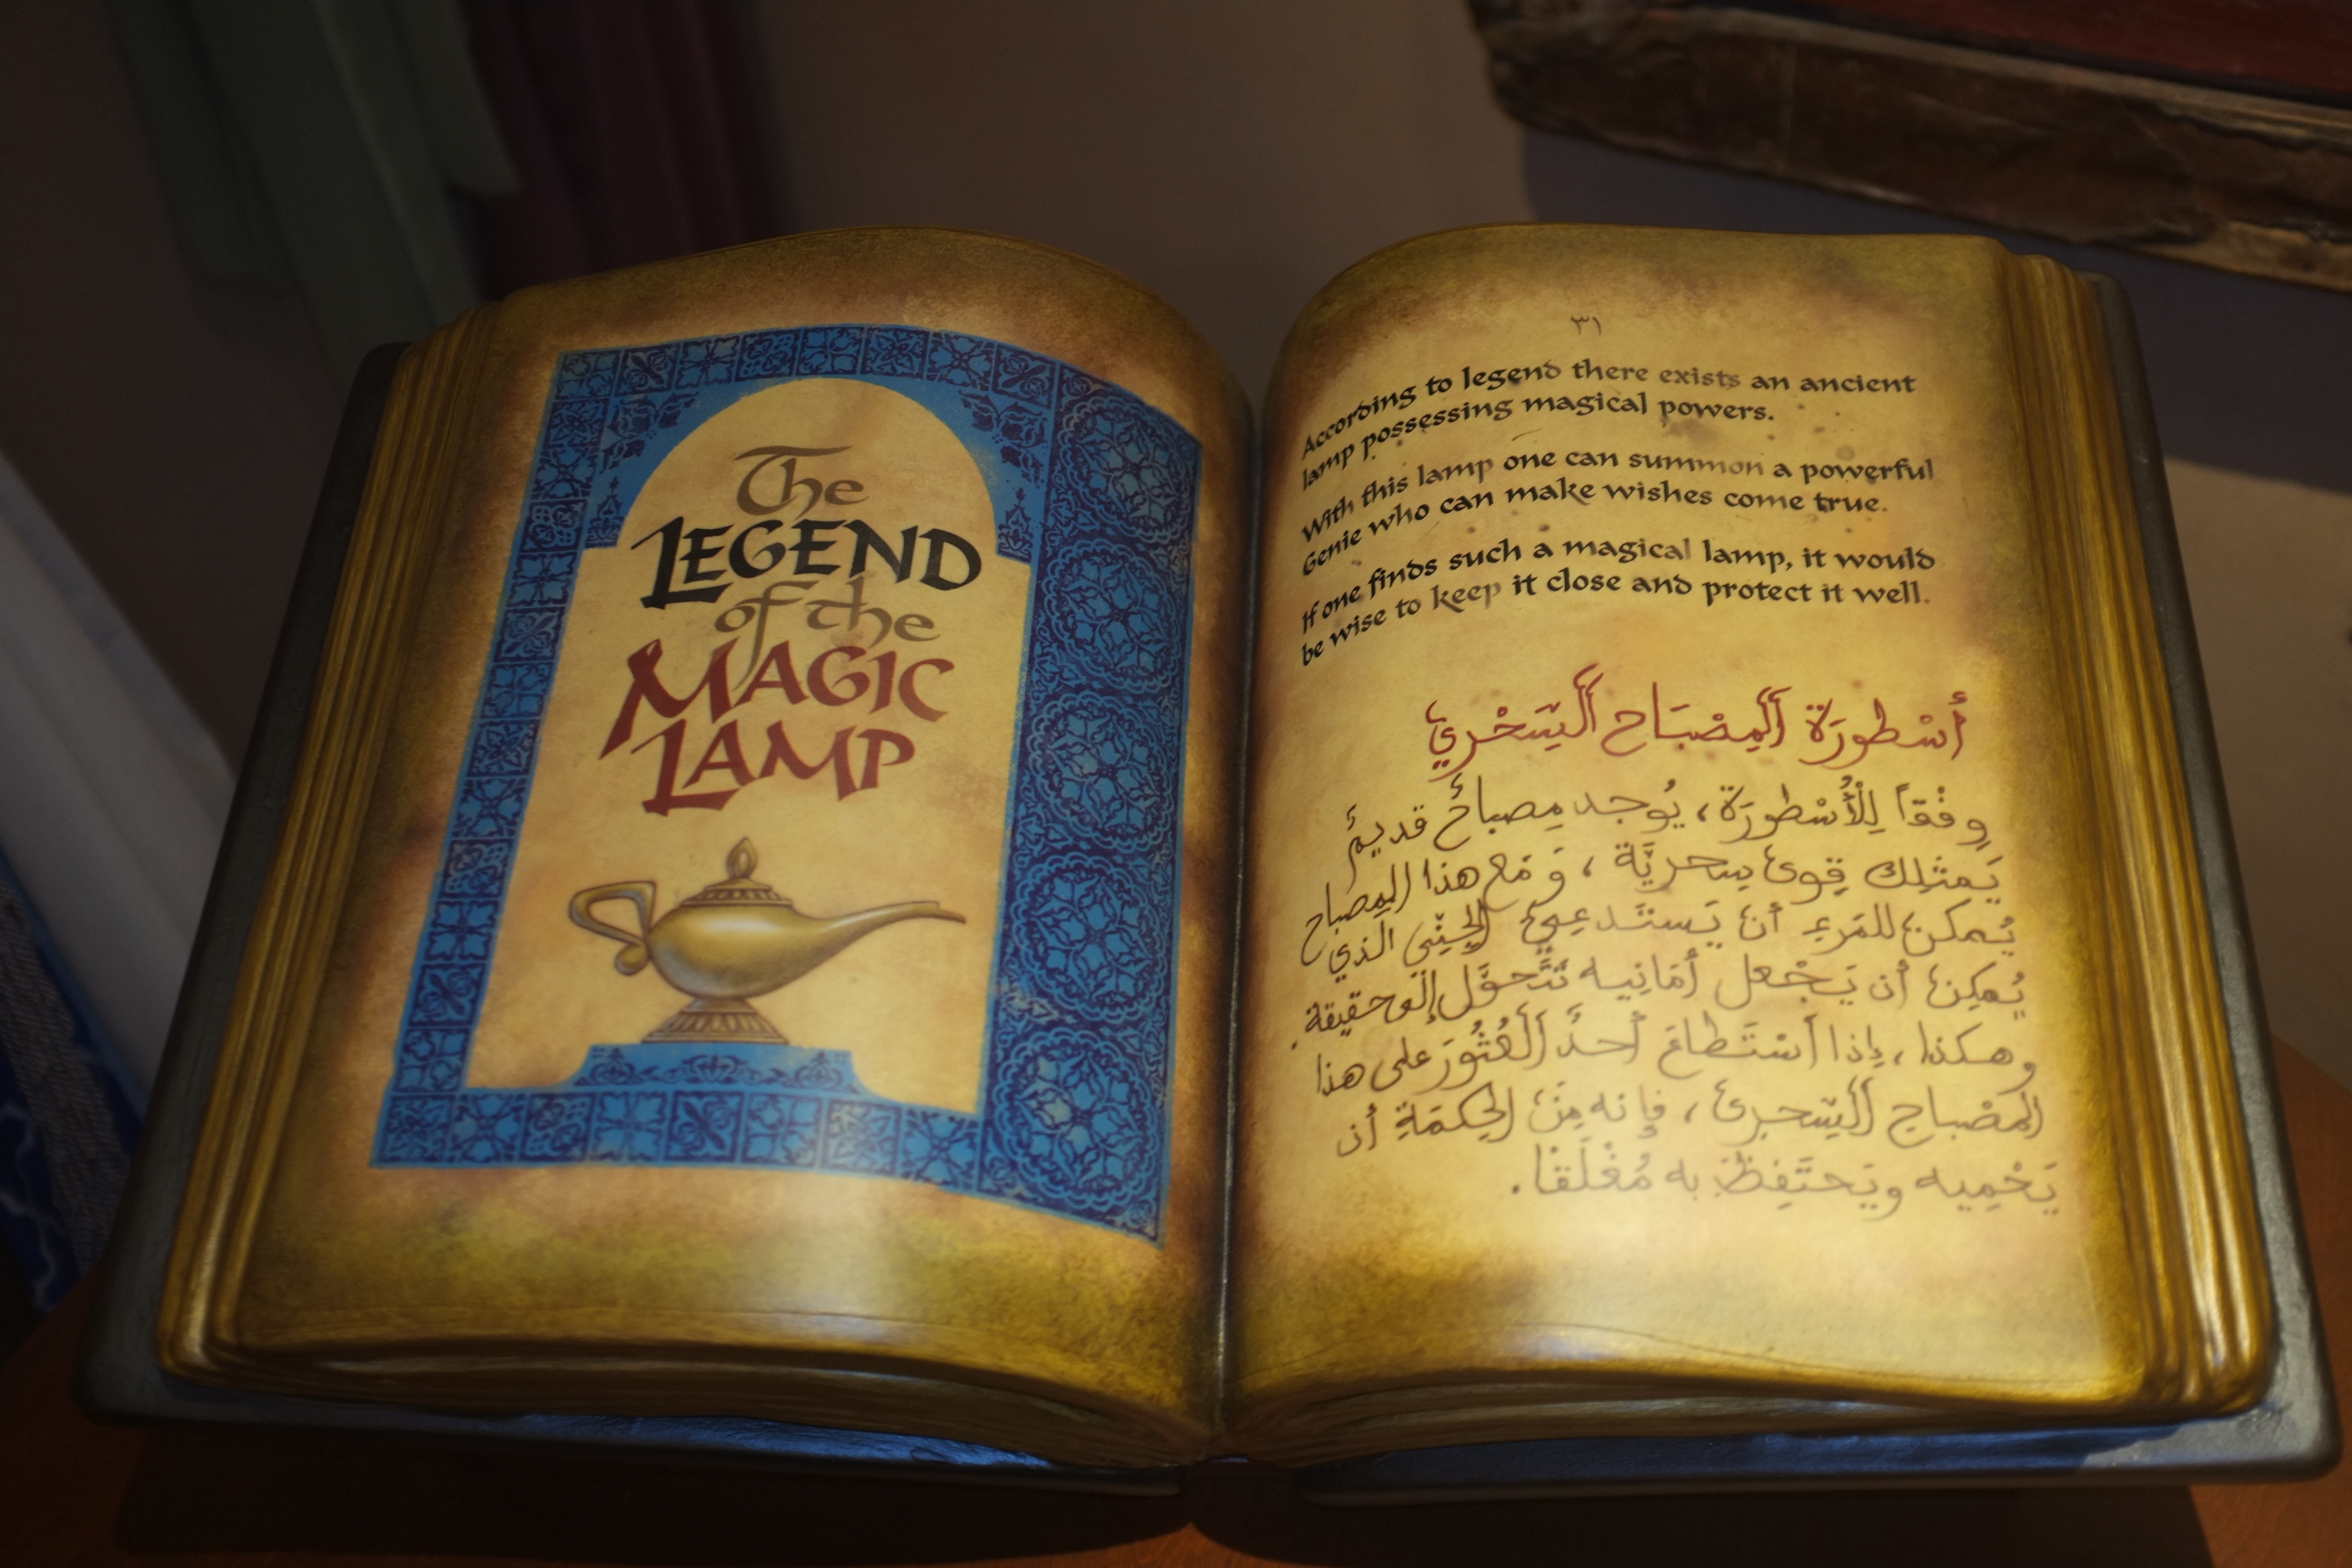 The
LEGEND
of the
MAGIC
LAMP
٣١
According to legend there exists an ancient
lamp possessing magical powers.
With this lamp one can summon a powerful
Genie who can make wishes come true.
If one finds such a magical lamp, it would
be wise to keep it close and protect it well.
أسْطورَة اَلمِصْبَاح اَلسِّحْري
وفْقاً لِلْأُسْطورَة، يُوجد مِصباحٌ قديمٌ
يَمتَلِك قِوىً سِحريَّة، وَ مَع هذا المِصباح
يُمكن للمَرءِ أن يَستَدعِيَ الجِنِّي الذي
يُمكِن أن يَجْعل أمَانِيه تَتَحوَّل إلى حقيقة.
وهكذا، إذا اَسْتَطاعَ أحدٌ اَلعُثُورَ على هذا
المِصْباح اَلسِّحرىَ، فإنه مِنَ الحِكمَةِ أن
يَحْمِيه ويَحتَفِظَ به مُغْلَقًا.